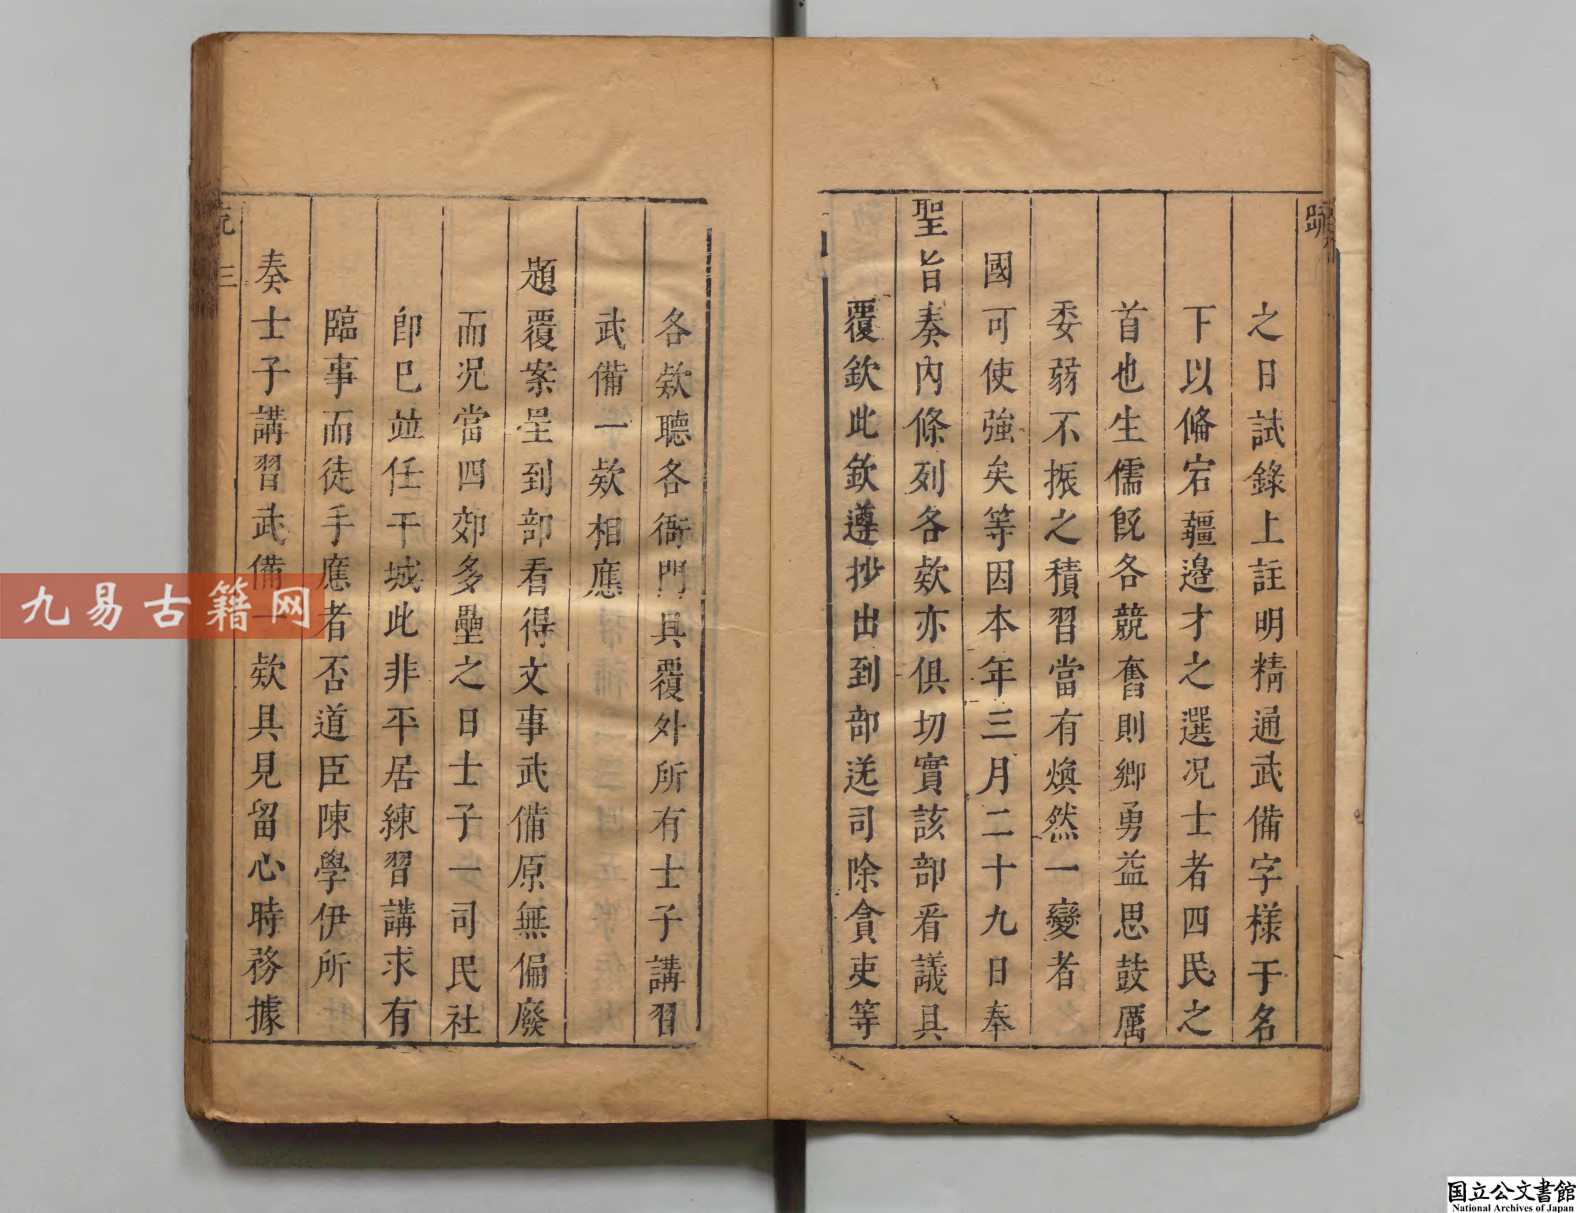 之日試錄上註明精通武備字樣于名
下以備宕疆邊才之選况士者四民之
首也生儒旣各競奮則鄉勇益思鼓厲
委弱不振之積習當有煥然一變者
國可使強矣等因本年三月二十九日奉
聖旨奏內條列各欵亦俱切實該部看議具
覆欽此欽遵抄出到部送司除貪吏等
各欵聽各衙門具覆外所有士子講習
武備一欵相應
題覆案呈到部看得文事武備原無偏廢
而况當四郊多壘之日士子一司民社
卽已竝任干城此非平居練習講求有
臨事而徒手應者否道臣陳學伊所
奏士子講習武備一欵具見留心時務據
三
九易古籍网
国立公文書館
National Archives of Japan